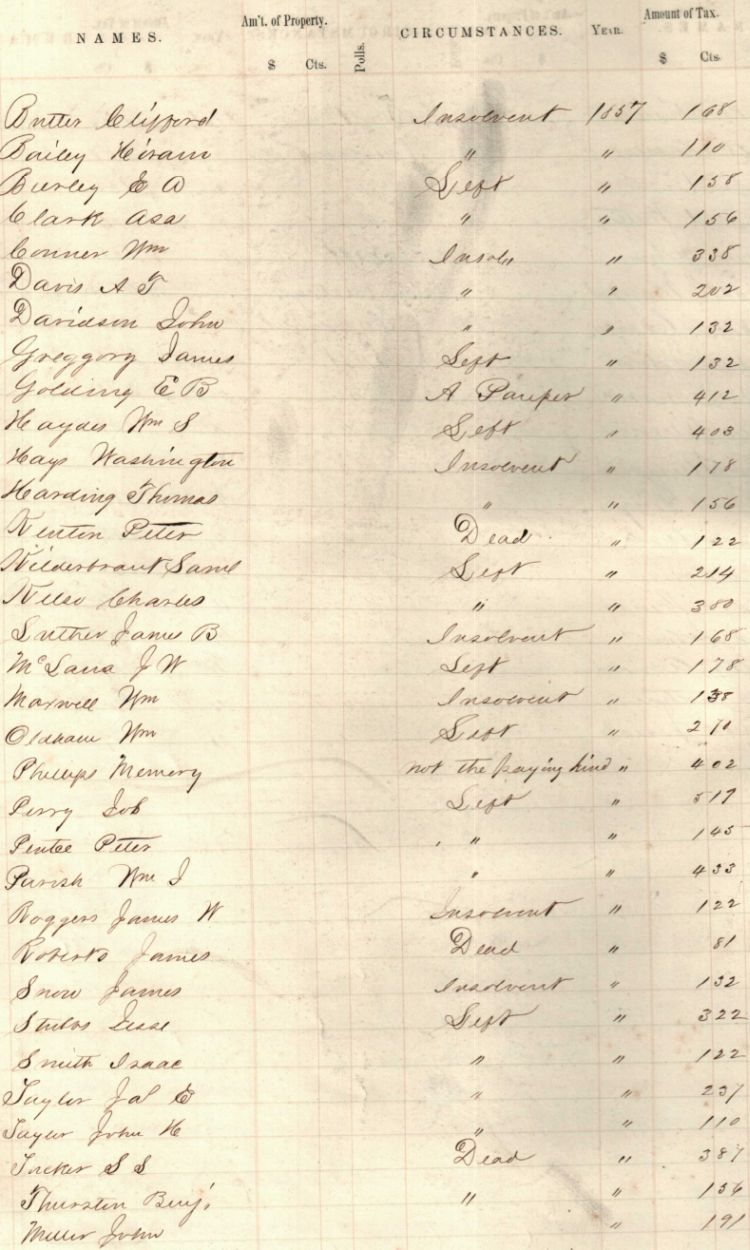 NAMES. Am't. of Property. $ Cts. Polls. CIRCUMSTANCES. YEAR. Amount of Tax. $ Cts.
Butler Clifford Insolvent 1857 168
Bailey Hiram " " 110
Burley E A Left " 158
Clark Asa " " 156
Conner Wm Insol" " 338
Davis A T " " 202
Davidson John " " 132
Greggory James Left " 132
Golding E B A Pauper " 412
Haydes Wm S Left " 403
Hays Washington Insolvent " 178
Harding Thomas " " 156
Kenton Peter Dead " 122
Hilderbrant Saml Left " 214
Kelso Charles " " 380
Luther James B Insolvent " 168
J W Left " 178
Maxwell Wm Insolvent " 138
Oldham Wm Left "
Phillips Memory not the paying kind " 402
Perry Job Left " 517
Pentee Peter " " 145
Parish Wm J " " 433
Roggers James W Insolvent " 122
Roberts James Dead " 81
Snow James Insolvent " 132
Stubbs Jesse Left " 322
Smith Isaac " " 122
Taylor E " " 237
Taylor John H " " 110
Tucker S S Dead " 387
Thurston Benj. " " 156
Miller John " 191